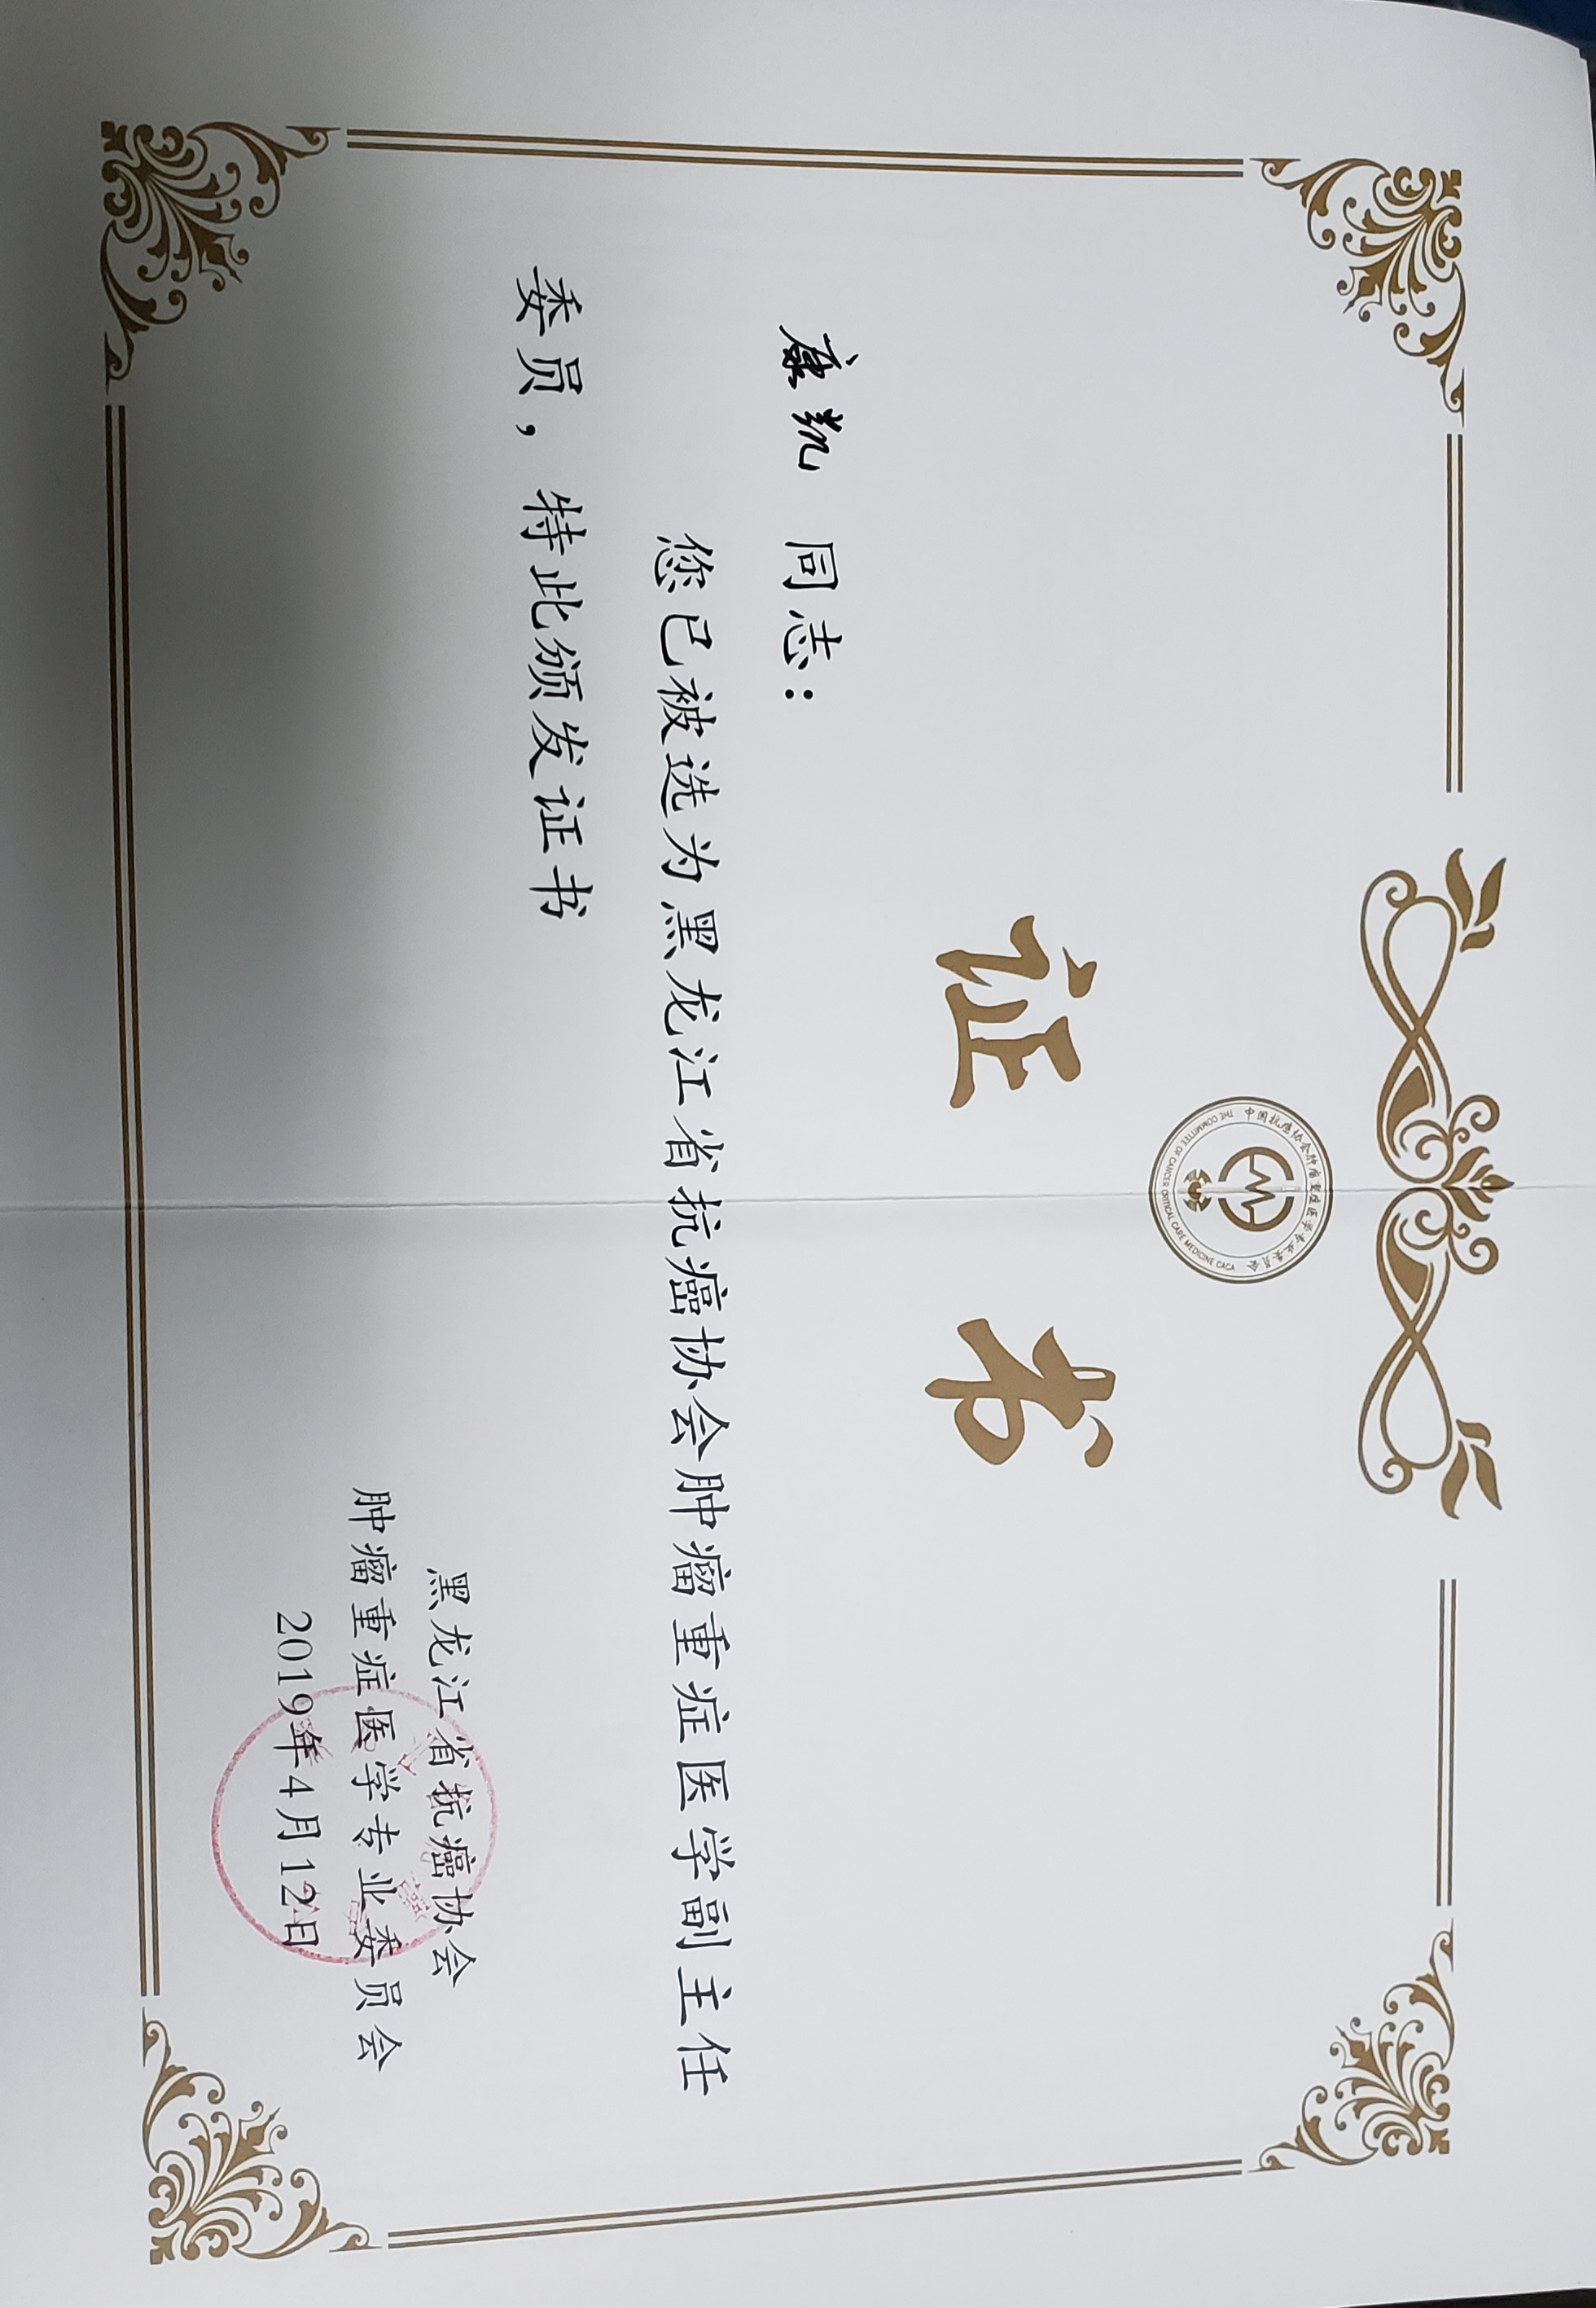 中国抗癌协会肿瘤重症医学专业委员会
THE COMMITTEE OF CANCER CRITICAL CARE MEDICINE CACA
证书
康凯 同志：
您已被选为黑龙江省抗癌协会肿瘤重症医学副主任
委员，特此颁发证书
黑龙江省抗癌协会
肿瘤重症医学专业委员会
2019年4月12日